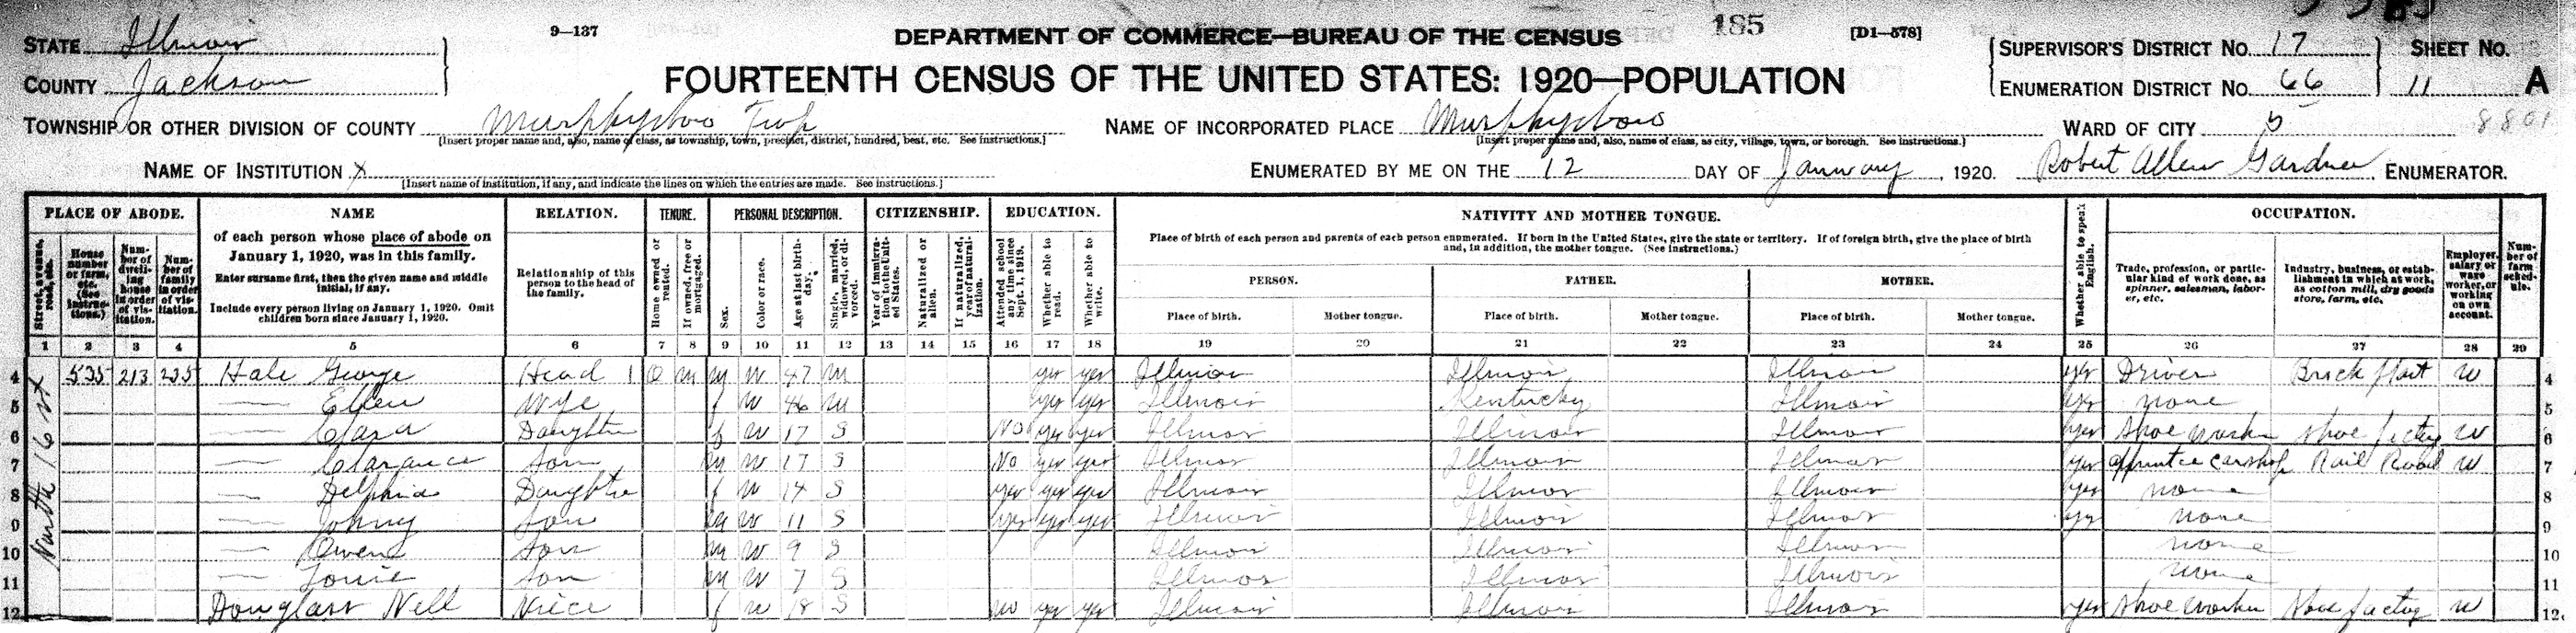 STATE Illinois
COUNTY Jackson
9—137
DEPARTMENT OF COMMERCE—BUREAU OF THE CENSUS
185
[D1—578]
FOURTEENTH CENSUS OF THE UNITED STATES: 1920—POPULATION
SUPERVISOR'S DISTRICT NO. 17
ENUMERATION DISTRICT NO. 66
SHEET NO.
11 A
TOWNSHIP OR OTHER DIVISION OF COUNTY Murphysboro Twp
[Insert proper name and, also, name of class, as township, town, precinct, district, hundred, beat, etc. See instructions.]
NAME OF INCORPORATED PLACE Murphysboro
[Insert proper name and, also, name of class, as city, village, town, or borough. See instructions.]
WARD OF CITY 5
8801
NAME OF INSTITUTION X
[Insert name of institution, if any, and indicate the lines on which the entries are made. See instructions.]
ENUMERATED BY ME ON THE 12 DAY OF January, 1920. Robert Allen Gardner, ENUMERATOR.
PLACE OF ABODE.
Street, avenue, road, etc.
House number or farm, etc. (See instructions.)
Number of dwelling house in order of visitation.
Number of family in order of visitation.
NAME
of each person whose place of abode on
January 1, 1920, was in this family.
Enter surname first, then the given name and middle
initial, if any.
Include every person living on January 1, 1920. Omit
children born since January 1, 1920.
RELATION.
Relationship of this
person to the head of
the family.
TENURE.
Home owned or rented.
If owned, free or mortgaged.
PERSONAL DESCRIPTION.
Sex.
Color or race.
Age at last birthday.
Single, married, widowed, or divorced.
CITIZENSHIP.
Year of immigration to the United States.
Naturalized or alien.
If naturalized, year of naturalization.
EDUCATION.
Attended school any time since Sept. 1, 1919.
Whether able to read.
Whether able to write.
NATIVITY AND MOTHER TONGUE.
Place of birth of each person and parents of each person enumerated. If born in the United States, give the state or territory. If of foreign birth, give the place of birth
and, in addition, the mother tongue. (See instructions.)
PERSON. FATHER. MOTHER.
Place of birth. Mother tongue. Place of birth. Mother tongue. Place of birth. Mother tongue.
Whether able to speak English.
OCCUPATION.
Trade, profession, or particular kind of work done, as spinner, salesman, laborer, etc.
Industry, business, or establishment in which at work, as cotton mill, dry goods store, farm, etc.
Employer, salary or wage worker, or working on own account.
Number of farm schedule.
1 2 3 4 5 6 7 8 9 10 11 12 13 14 15 16 17 18 19 20 21 22 23 24 25 26 27 28 29
North 16 st
4 535 213 235 Hale George Head 1 O m m W 47 m yes yes Illinois Illinois Illinois yes Driver Brick plant W 4
5 — Ellen Wife f W 46 m yes yes Illinois Kentucky Illinois yes none 5
6 — Clara Daughter f W 17 S No yes yes Illinois Illinois Illinois yes Shoe worker Shoe factory W 6
7 — Clarance Son m W 17 S No yes yes Illinois Illinois Illinois yes apprentice carshop Rail Road W 7
8 — Delphia Daughter f W 14 S yes yes yes Illinois Illinois Illinois yes none 8
9 — Johny Son m W 11 S yes yes yes Illinois Illinois Illinois yes none 9
10 — Owen Son m W 9 S Illinois Illinois Illinois none 10
11 — Louie Son m W 7 S Illinois Illinois Illinois none 11
12 Douglass Nell Niece f W 18 S no yes yes Illinois Illinois Illinois yes Shoe worker Shoe factory W 12